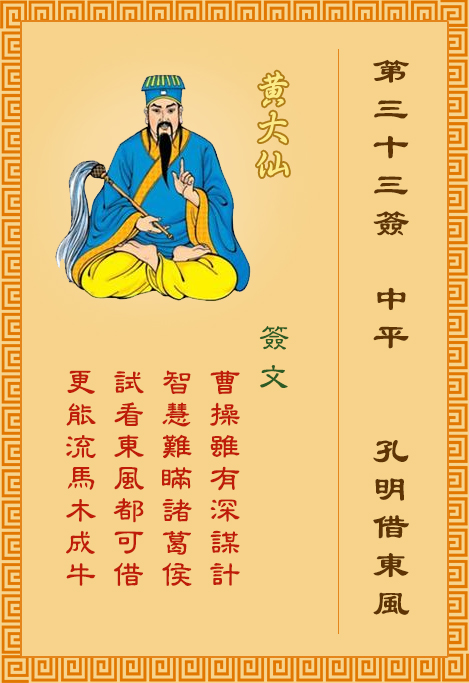 第三十三簽 中平 孔明借東風
黄大仙
簽文
曹操雖有深謀計
智慧難瞞諸葛侯
試看東風都可借
更能流馬木成牛